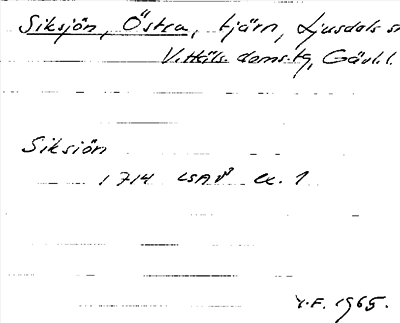 Siksjön, Östra, tjärn, Ljusdals sn
V. Häls. doms.tg, Gävl.l.
Siksiön
1714 LSA
Y.F. 1965.